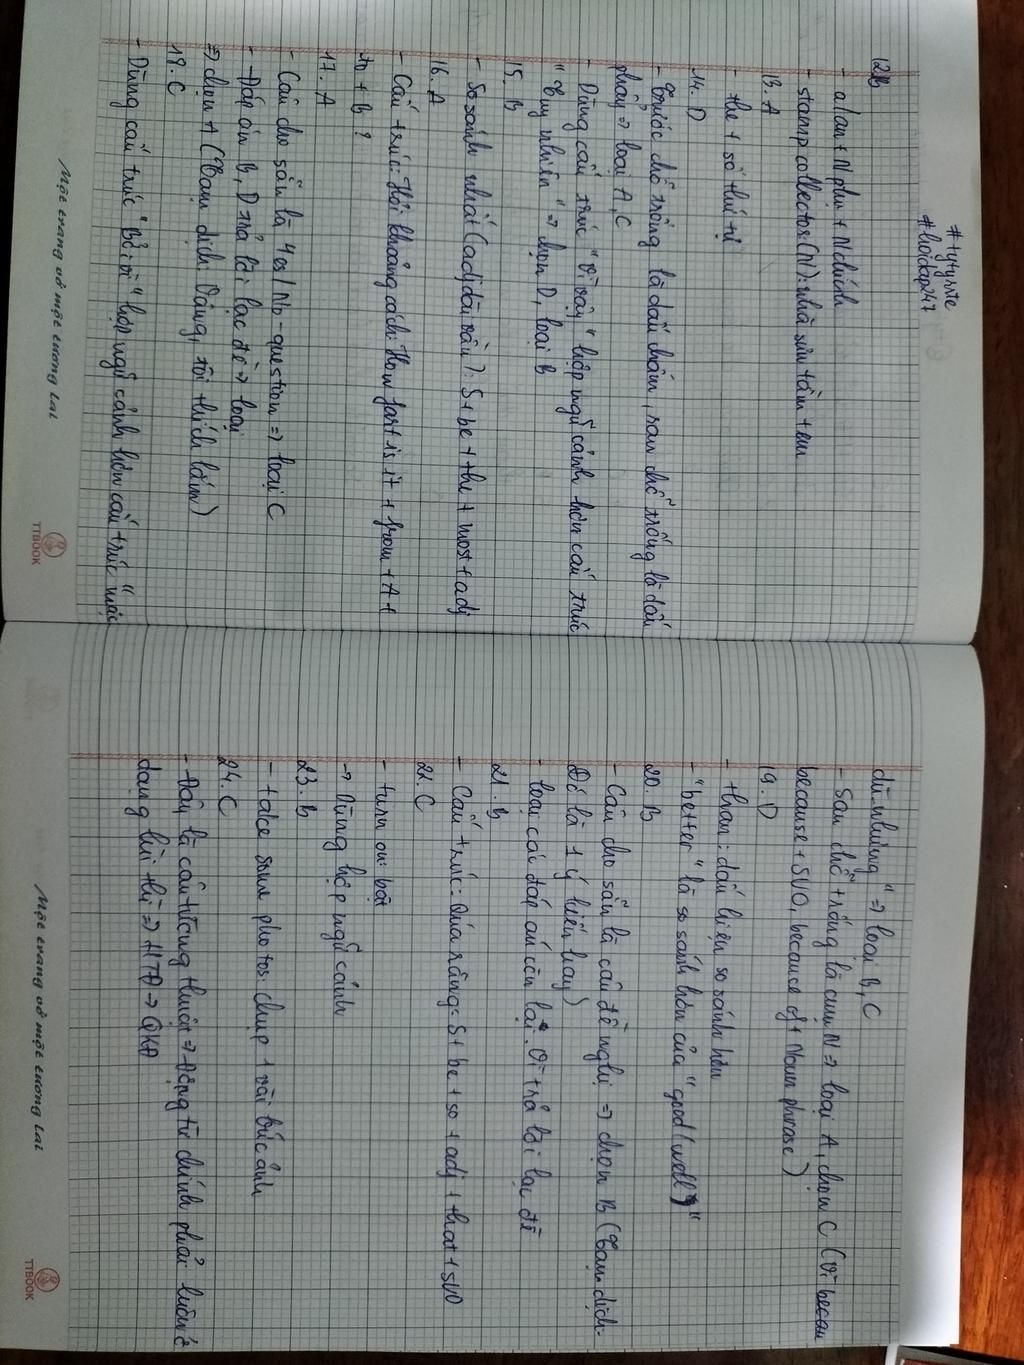 #tytynte
#hoidap247
12B
- a/an + N phụ + N chính
- stamp collector (N): nhà sưu tầm tem
13. A
- the + số thứ tự
14. D
- Trước chỗ trống là dấu chấm, sau chỗ trống là dấu
phẩy ⇒ loại A, C
- Dùng cấu trúc "Vì vậy" hợp ngữ cảnh hơn cấu trúc
"Tuy nhiên" ⇒ chọn D, loại B
15. B
- So sánh nhất (adj dài vần): S + be + the + most + adj
16. A
- Cấu trúc: Hỏi khoảng cách: How far is it + from + A +
to + B?
17. A
- Câu cho sẵn là Yes/No-question ⇒ loại C
- Đáp án B, D trả lời lạc đề ⇒ loại
⇒ chọn A (Tạm dịch: Vâng, tôi thích lắm)
18. C
- Dùng cấu trúc "Bởi vì" hợp ngữ cảnh hơn cấu trúc "mặc
Một trang vở một tương lai
TTBOOK
dù-nhưng" ⇒ loại B, C
- Sau chỗ trống là cụm N ⇒ loại A, chọn C (Vì becau
because + SVO, because of + Noun phrase)
19. D
- than: dấu hiệu so sánh hơn
- "better" là so sánh hơn của "good/well"
20. B
- Câu cho sẵn là câu đề nghị ⇒ chọn B (Tạm dịch:
Đó là 1 ý kiến hay)
- loại các đáp án còn lại. Vì trả lời lạc đề
21. B
- Cấu trúc: Quá rằng: S + be + so + adj + that + SVO
22. C
- turn on: bật
→ Dùng hợp ngữ cảnh
23. B
- take some photos: chụp 1 vài bức ảnh
24. C
- Đây là câu tường thuật ⇒ Động từ chính phải luôn ở
dạng lùi thì ⇒ HTĐ → QKĐ
Một trang vở một tương lai
TTBOOK